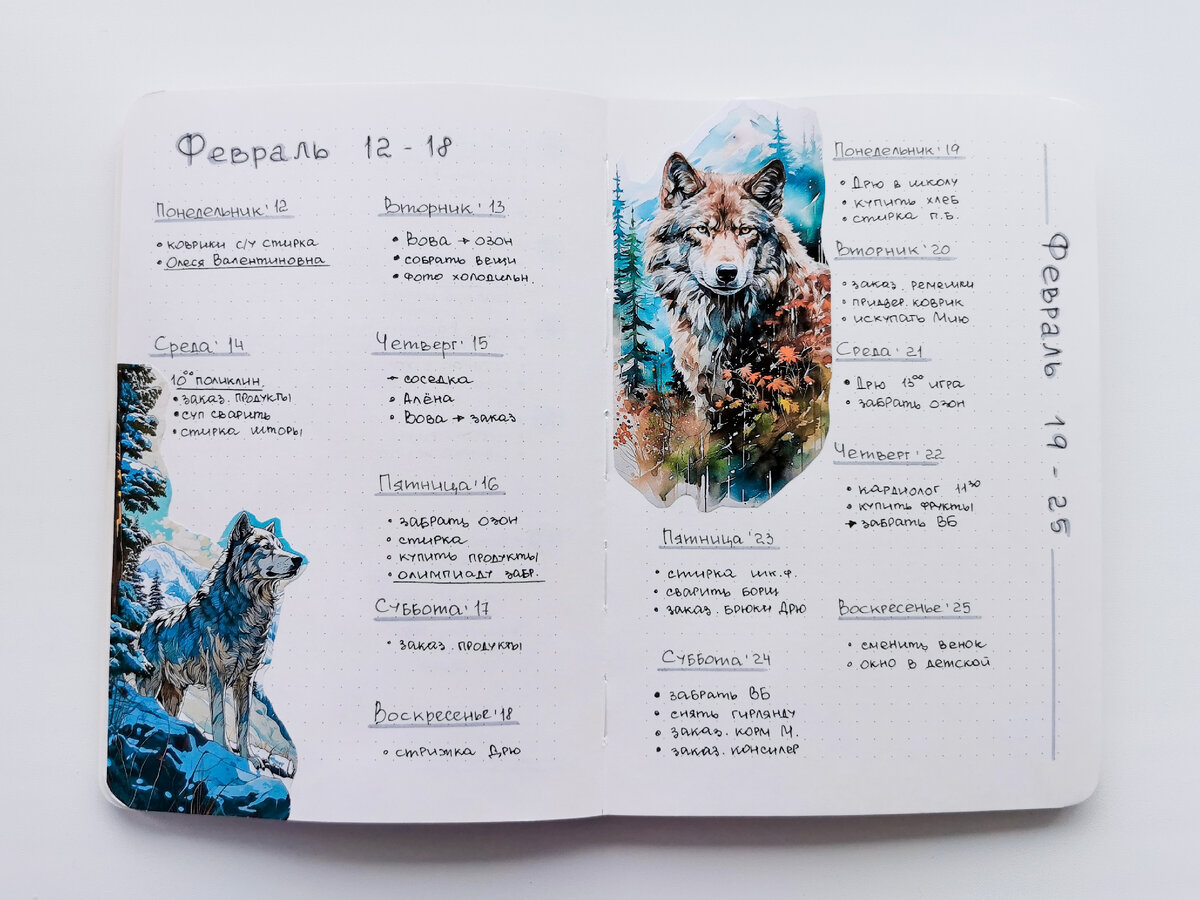 Февраль 12 - 18
Понедельник'12
• коврики с/у стирка
• Олеся Валентиновна
Вторник'13
• Вова → озон
• собрать вещи
• фото холодильн.
Среда'14
10⁰⁰ поликлин.
• заказ. продукты
• суп сварить
• стирка шторы
Четверг'15
→ соседка
• Алёна
• Вова → заказ
Пятница'16
• забрать озон
• стирка
• купить продукты
• олимпиаду забр.
Суббота'17
• заказ. продукты
Воскресенье'18
• стрижка Дрю
Февраль 19 - 25
Понедельник'19
• Дрю в школу
• купить хлеб
• стирка п.б.
Вторник'20
• заказ. ремешки
• придвер. коврик
• искупать Мию
Среда'21
• Дрю 13⁰⁰ игра
• забрать озон
Четверг'22
• кардиолог 11³⁰
• купить фрукты
→ забрать ВБ
Пятница'23
• стирка шк.ф.
• сварить борщ
• заказ. брюки Дрю
Суббота'24
• забрать ВБ
• снять гирлянду
• заказ. корм М.
• заказ. консилер
Воскресенье'25
• сменить венок
• окно в детской